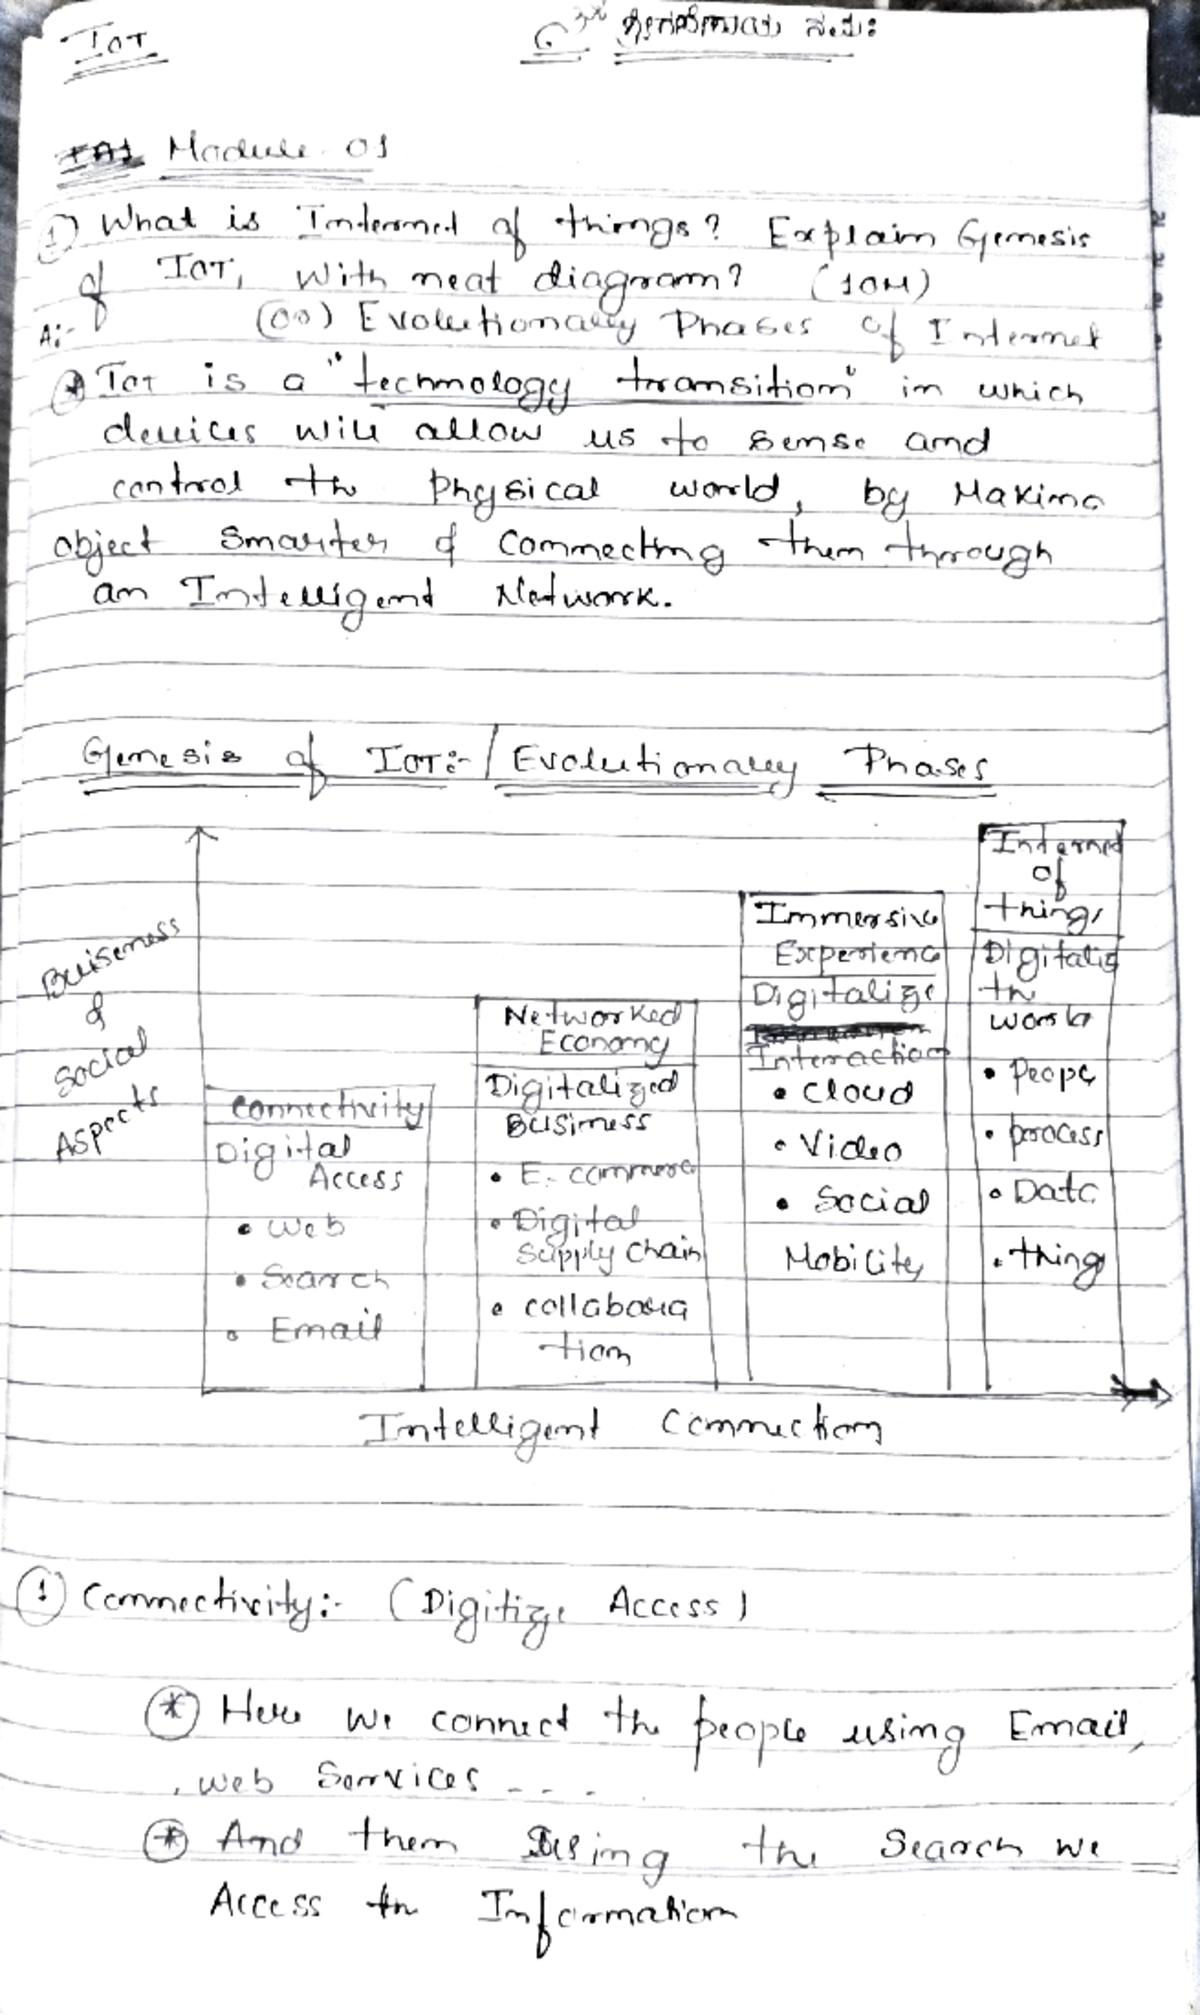 IOT
ಶ್ರೀ ಗಣೇಶಾಯ ನಮಃ
Module 01
1) What is Internet of things? Explain Genesis
of IOT, With neat diagram? (10M)
A:- (or) Evolutionary Phases of Internet
* IOT is a "technology transition" in which
devices will allow us to sense and
control the Physical world, by Making
object Smarter & Connecting them through
an Intelligent Network.
Genesis of IOT:- / Evolutionary Phases
Buisness
&
Social
Aspects
Connectivity
Digital
Access
• Web
• Search
• Email
Networked
Economy
Digitalized
Business
• E-commerc
• Digital
Supply Chain
• collabora
tion
Immersive
Experienc
Digitalize
Interaction
• Cloud
• Video
• Social
Mobility
Internet
of
things
Digitalis
the
world
• Peope
• process
• Data
• thing
Intelligent Connection
1 Connectivity:- (Digitize Access)
* Here we connect the people using Email,
, web Services - - - .
* And them Using the Search we
Access the Information